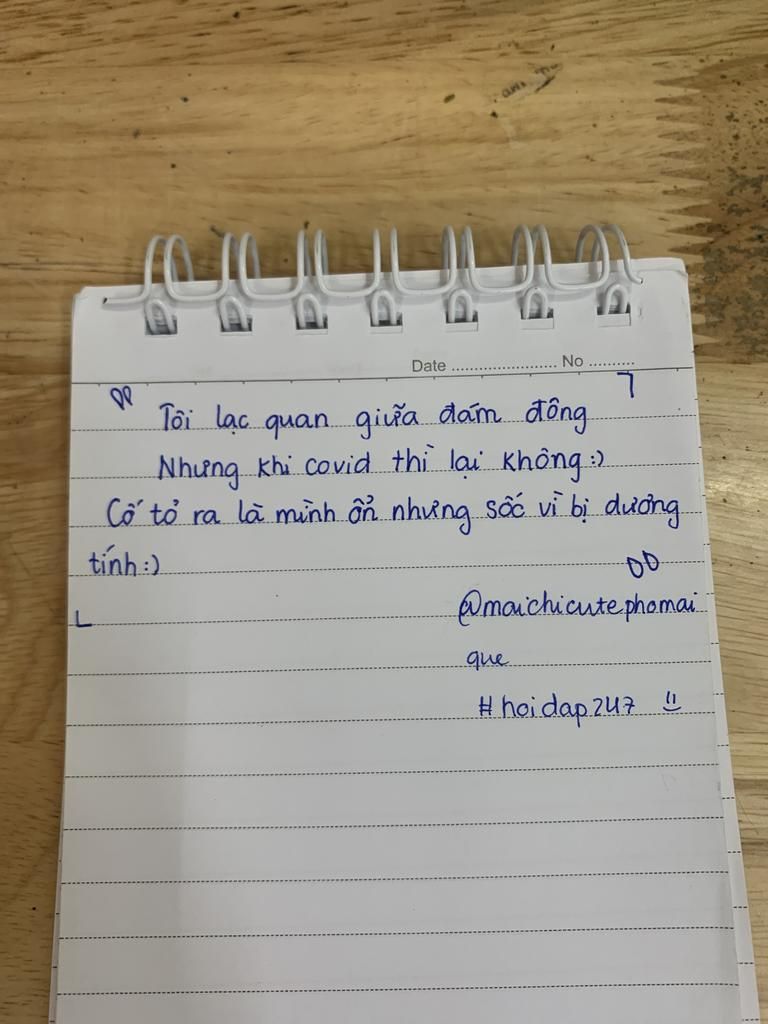 Date ........................ No ..........
" Tôi lạc quan giữa đám đông
Nhưng khi covid thì lại không:)
Cố tỏ ra là mình ổn nhưng sốc vì bị dương
tính:) "
@maichicutephomai
que
#hoidap247 "